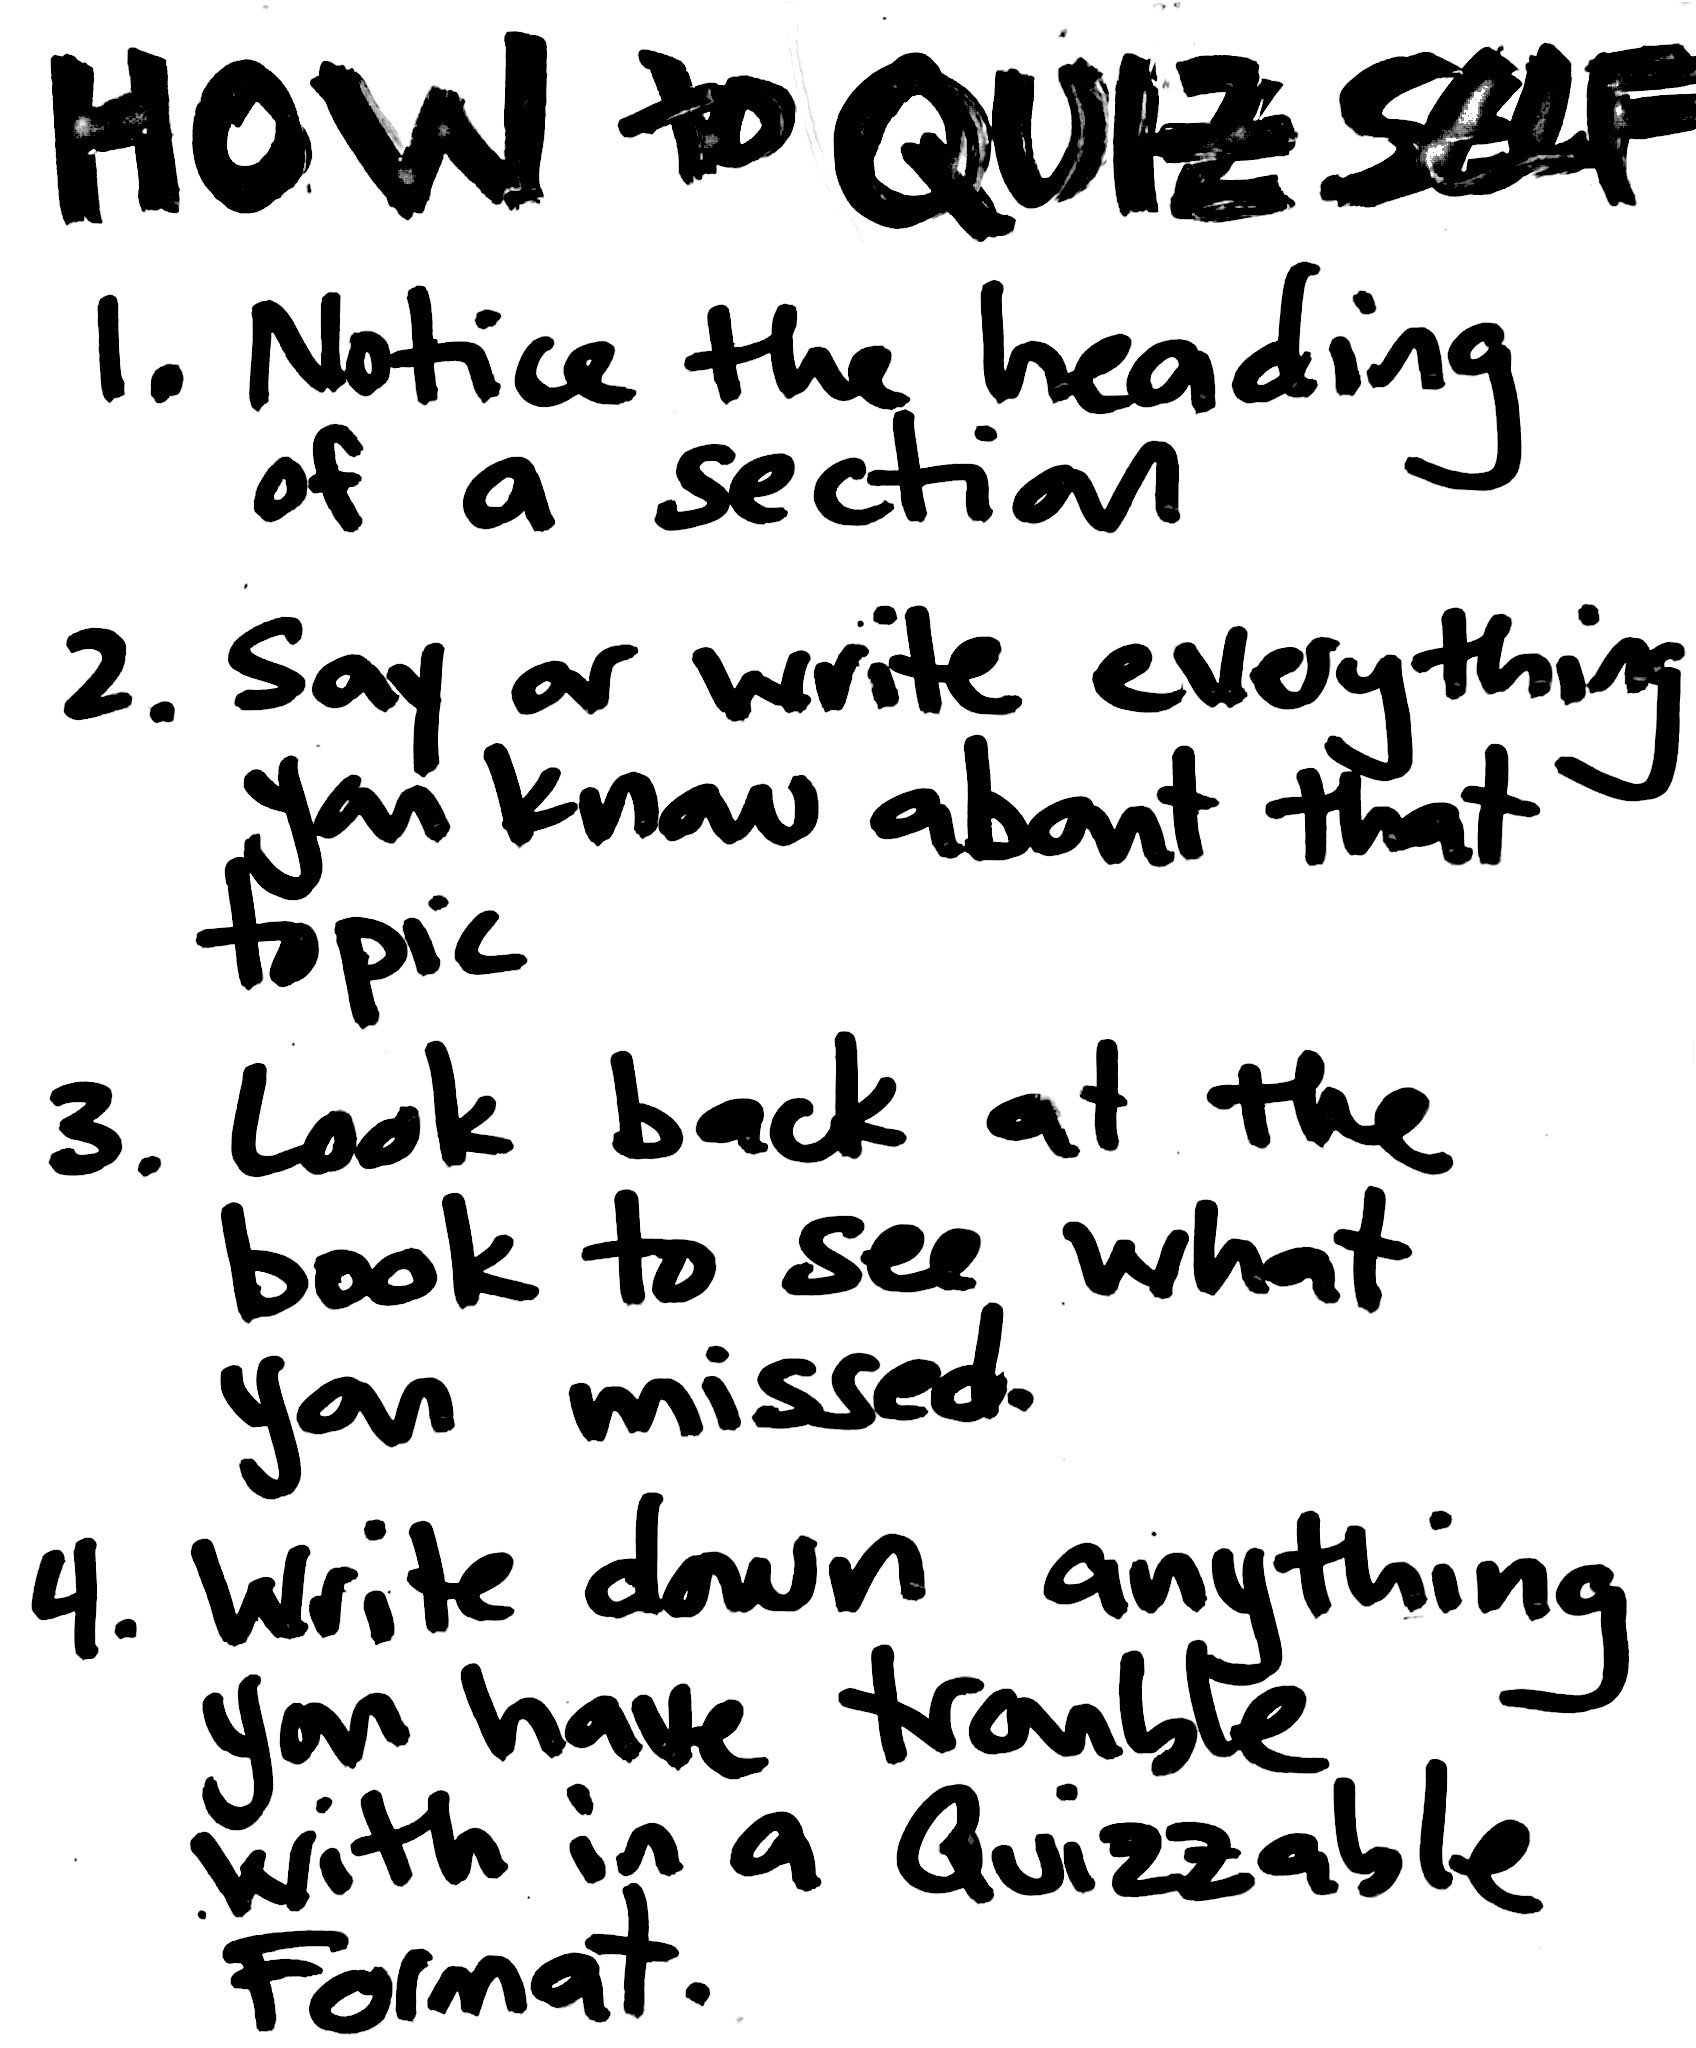 HOW to QUIZ SELF
1. Notice the heading
of a section
2. Say or write everything
you know about that
topic
3. Look back at the
book to see what
you missed.
4. Write down anything
you have trouble
with in a Quizzable
Format.